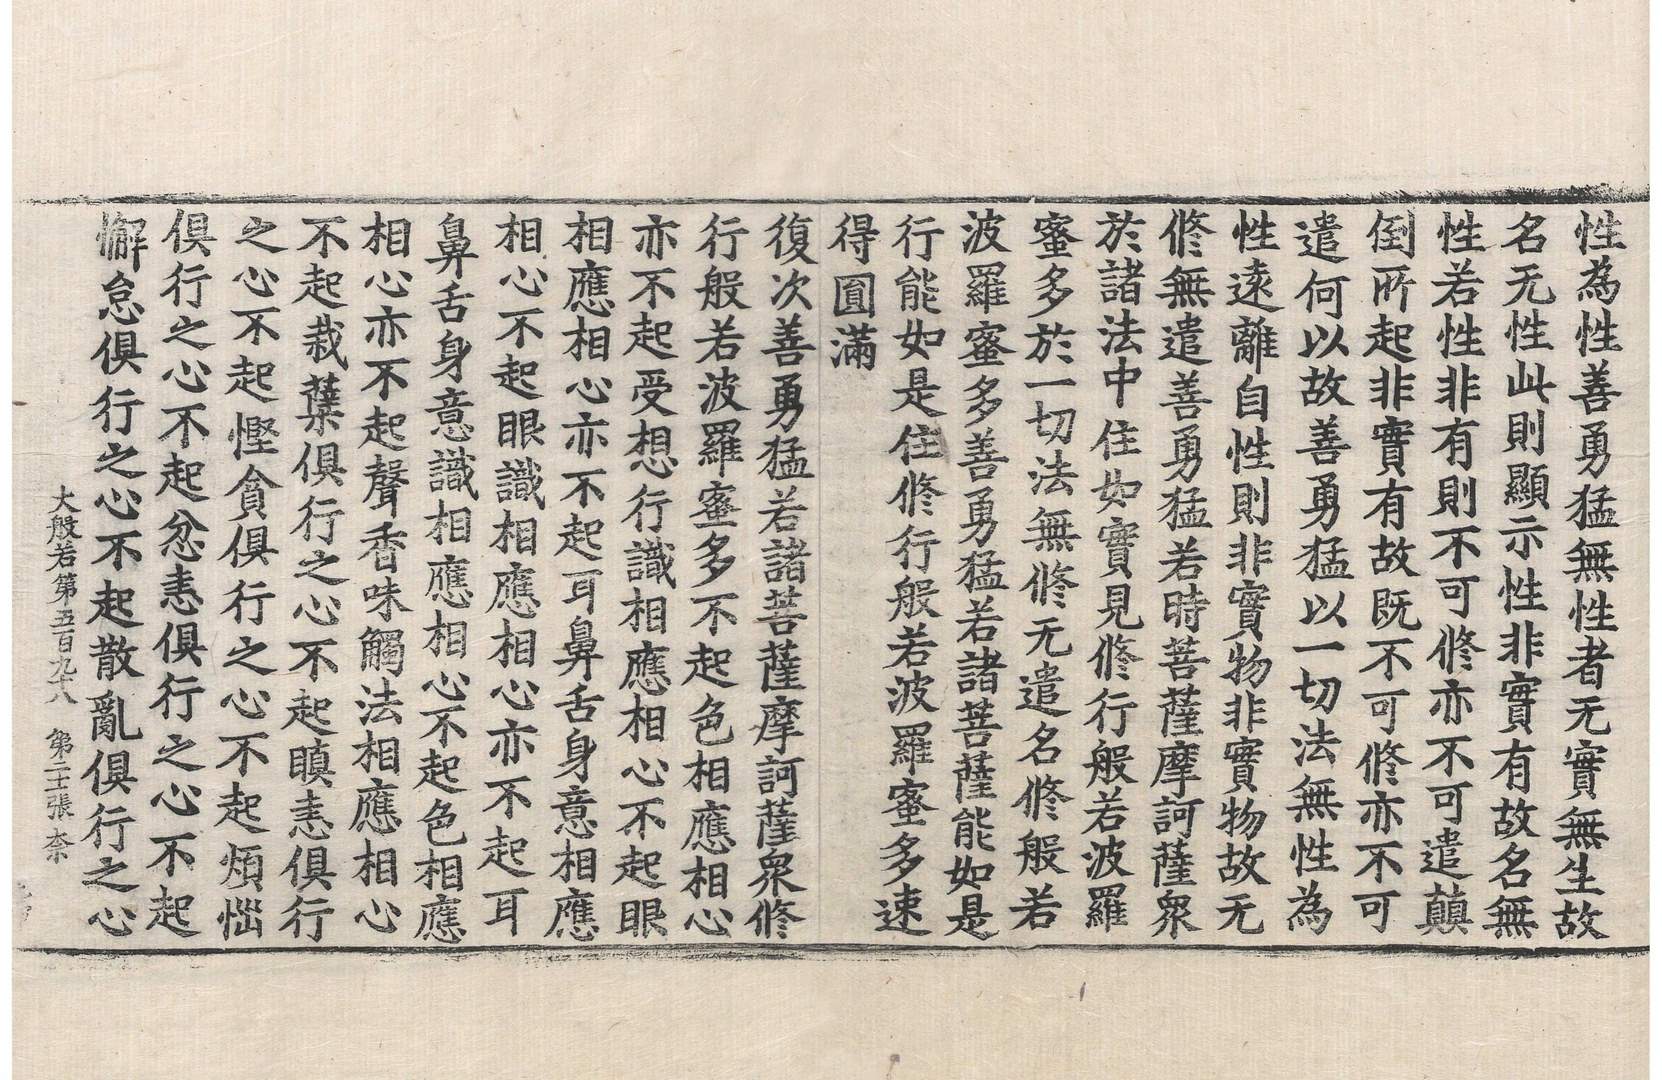 性為性善勇猛無性者无實無生故
名无性此則顯示性非實有故名無
性若性非有則不可修亦不可遣顛
倒所起非實有故既不可修亦不可
遣何以故善勇猛以一切法無性為
性遠離自性則非實物非實物故无
修無遣善勇猛若時菩薩摩訶薩衆
於諸法中住如實見修行般若波羅
蜜多於一切法無修无遣名修般若
波羅蜜多善勇猛若諸菩薩能如是
行能如是住修行般若波羅蜜多速
得圓滿
復次善勇猛若諸菩薩摩訶薩衆修
行般若波羅蜜多不起色相應相心
亦不起受想行識相應相心不起眼
相應相心亦不起耳鼻舌身意相應
相心不起眼識相應相心亦不起耳
鼻舌身意識相應相心不起色相應
相心亦不起聲香味觸法相應相心
不起栽蘖俱行之心不起瞋恚俱行
之心不起慳貪俱行之心不起煩惱
俱行之心不起忿恚俱行之心不起
懈怠俱行之心不起散亂俱行之心
大般若第五百九十八 第二十張 柰